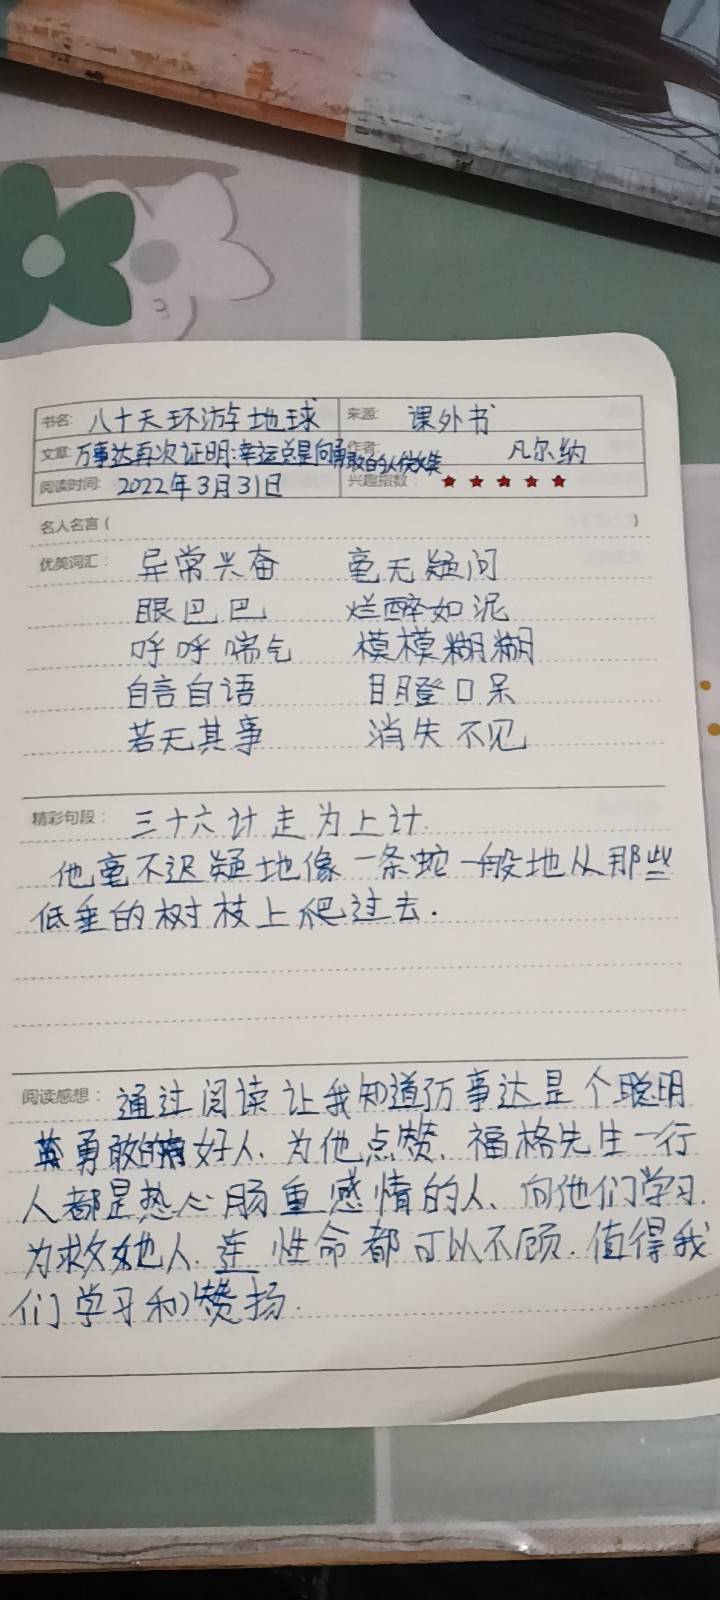 书名: 八十天环游地球 来源: 课外书
文章: 万事达再次证明:幸运总是向勇敢的人微笑 作者: 凡尔纳
阅读时间: 2022年3月31日 兴趣指数: ★ ★ ★ ★ ★
名人名言 ( )
优美词汇: 异常兴奋 毫无疑问
眼巴巴 烂醉如泥
呼呼喘气 模模糊糊
自言自语 目瞪口呆
若无其事 消失不见
精彩句段: 三十六计走为上计.
他毫不迟疑地像一条蛇一般地从那些
低垂的树枝上爬过去.
阅读感想: 通过阅读让我知道万事达是个聪明
勇敢的好人、为他点赞、福格先生一行
人都是热心肠重感情的人、向他们学习.
为求救他人.连性命都可以不顾.值得我
们学习和赞扬.